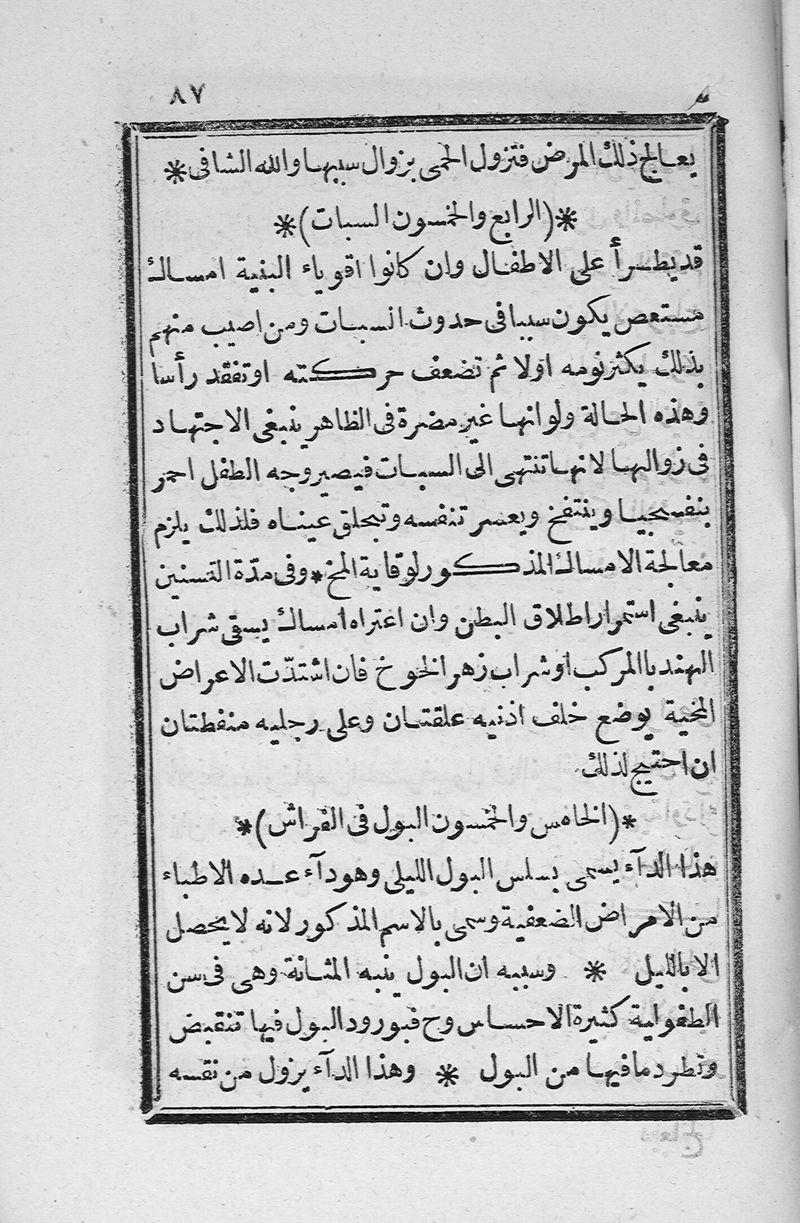 ٨٧
يعالج ذلك المرض فتزول الحمى بزوال سببها والله الشافى *
*(الرابع والخمسون السبات)*
قد يطرأ على الاطفال وان كانوا اقوياء البنية امساك
مستعص يكون سببا فى حدوث السبات ومن اصيب منهم
بذلك يكثر نومه اولا ثم تضعف حركته او تفقد رأسا
وهذه الحالة ولو انها غير مضرة فى الظاهر ينبغى الاجتهاد
فى زوالها لانها تنتهى الى السبات فيصير وجه الطفل احمر
بنفسجيا وينتفخ ويعسر تنفسه وتبحلق عيناه فلذلك يلزم
معالجة الامساك المذكور لوقاية المخ * وفى مدّة التسنين
ينبغى استمرار اطلاق البطن وان اعتراه امساك يسقى شراب
الهندبا المركب او شراب زهر الخوخ فان اشتدّت الاعراض
المخية يوضع خلف اذنيه علقتان وعلى رجليه منفطتان
ان احتيج لذلك
*(الخامس والخمسون البول فى الفراش)*
هذا الدآء يسمى بسلس البول الليلى وهو دآء عده الاطباء
من الامراض الضعفية وسمى بالاسم المذكور لانه لا يحصل
الا بالليل * وسببه ان البول ينبه المثانة وهى فى سن
الطفولية كثيرة الاحساس وح فبورود البول فيها تنقبض
وتطرد ما فيها من البول * وهذا الدآء يزول من نفسه